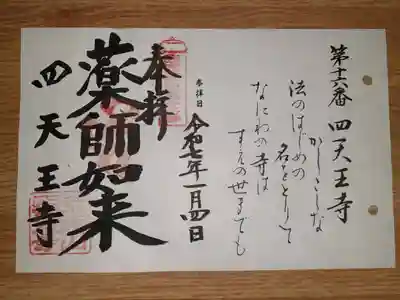 第十六番 四天王寺
かしこしな
法のはじめの
名をとりて
なにわの寺は
すえの世までも
参拝日
令和七年一月四日
奉拝
薬師如来
四天王寺